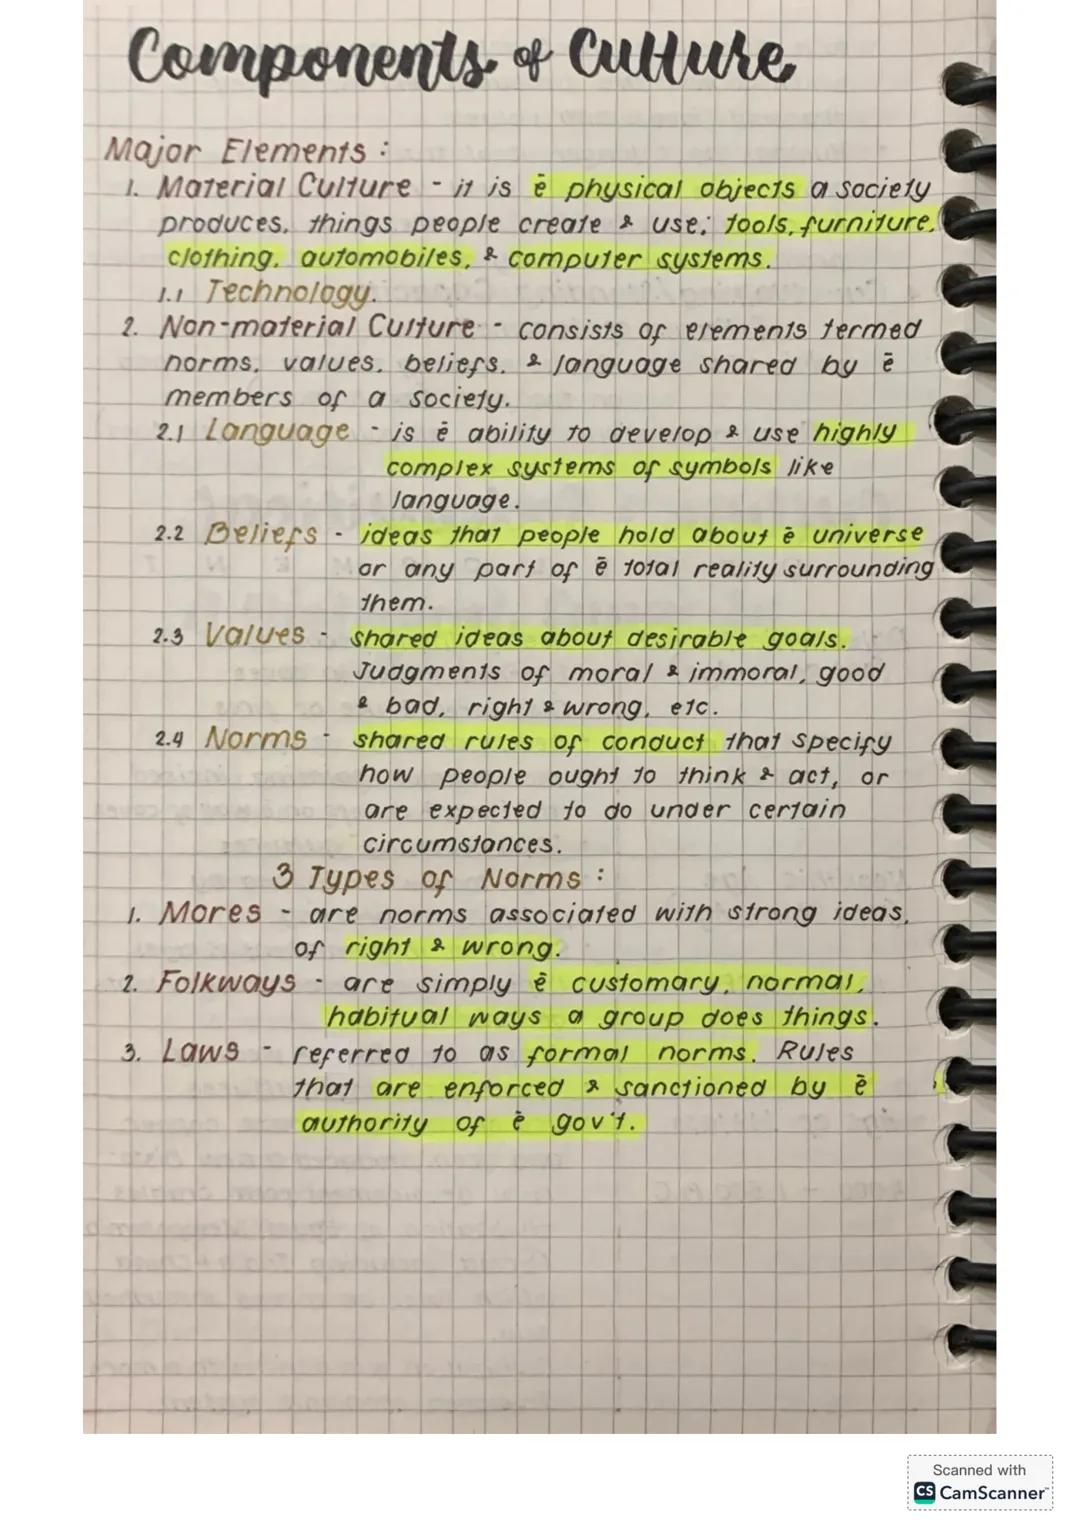 Components of Culture
Major Elements :
1. Material Culture - it is ē physical objects a society
produces, things people create & use; tools, furniture,
clothing, automobiles, & computer systems.
1.1 Technology.
2. Non-material Culture - consists of elements termed
norms, values, beliefs, & language shared by ē
members of a society.
2.1 Language - is ē ability to develop & use highly
complex systems of symbols like
language.
2.2 Beliefs - ideas that people hold about ē universe
or any part of ē total reality surrounding
them.
2.3 Values - shared ideas about desirable goals.
Judgments of moral & immoral, good
& bad, right & wrong, etc.
2.4 Norms - shared rules of conduct that specify
how people ought to think & act, or
are expected to do under certain
circumstances.
3 Types of Norms :
1. Mores - are norms associated with strong ideas,
of right & wrong.
2. Folkways - are simply ē customary, normal,
habitual ways a group does things.
3. Laws - referred to as formal norms. Rules
that are enforced & sanctioned by ē
authority of ē gov't.
Scanned with
CS CamScanner